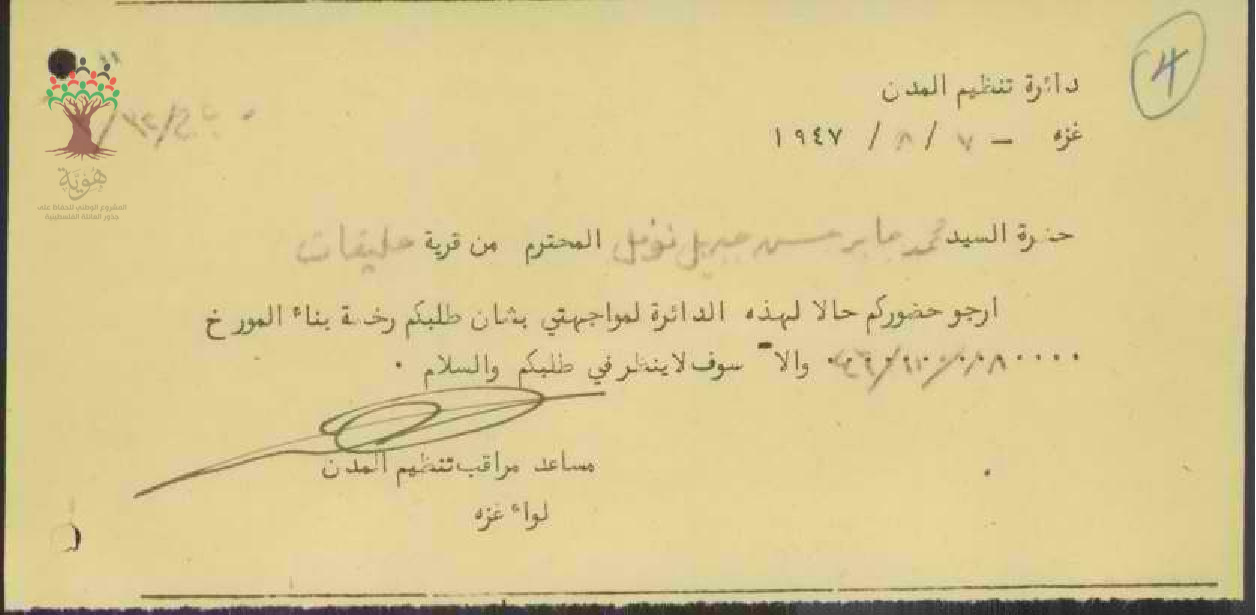 4
دائرة تنظيم المدن
غزه — ٧ / ٨ / ١٩٤٧
هوية
المشروع الوطني للحفاظ على
جذور العائلة الفلسطينية
حضرة السيد محمد جابر حسن جبريل نوفل المحترم من قرية حليقات
ارجو حضوركم حالا لهذه الدائرة لمواجهتي بشان طلبكم رخصة بناء المورخ
والا سوف لا ينظر في طلبكم والسلام ٠
مساعد مراقب تنظيم المدن
لواء غزه